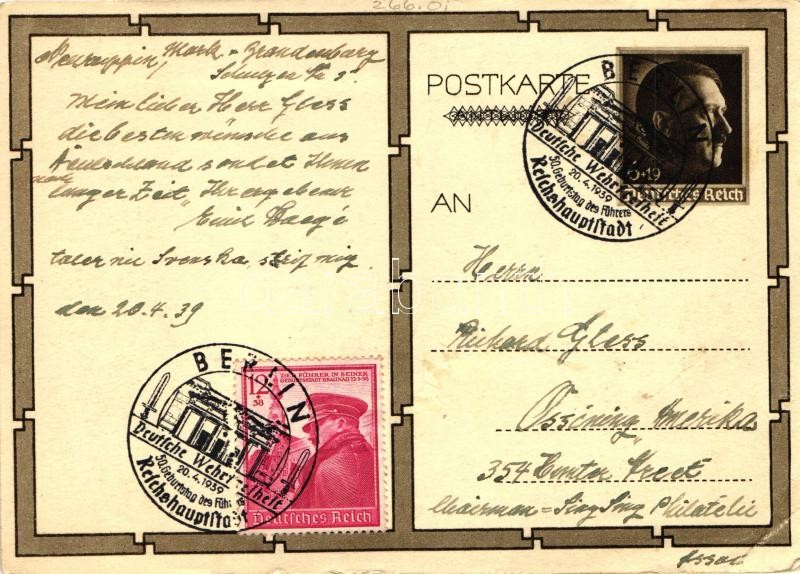 266.01
Neuruppin, Mark - Brandenburg
Mein lieber Herr Gless
die besten wünsche aus
Deutschland sendet Ihnen
nach langer Zeit, Ihr ergebener
Erich
taler ni Svenska, skrif mig.
den 20.4.39
BERLIN
Deutsche Wehrfreiheit
20.4.1939
50. Geburtstag des Führers
Reichshauptstadt
12
+
38
DER FÜHRER IN SEINER
GEBURTSSTADT BRAUNAU 12·3·38
Deutsches Reich
POSTKARTE
AN
BERLIN
Deutsche Wehrfreiheit
20.4.1939
50. Geburtstag des Führers
Reichshauptstadt
+19
Deutsches Reich
Herrn
Richard Gless
Ossining Amerika
354 Hunter Street
Chairman - Sing Sing Philatelic
Assoc
darabanth